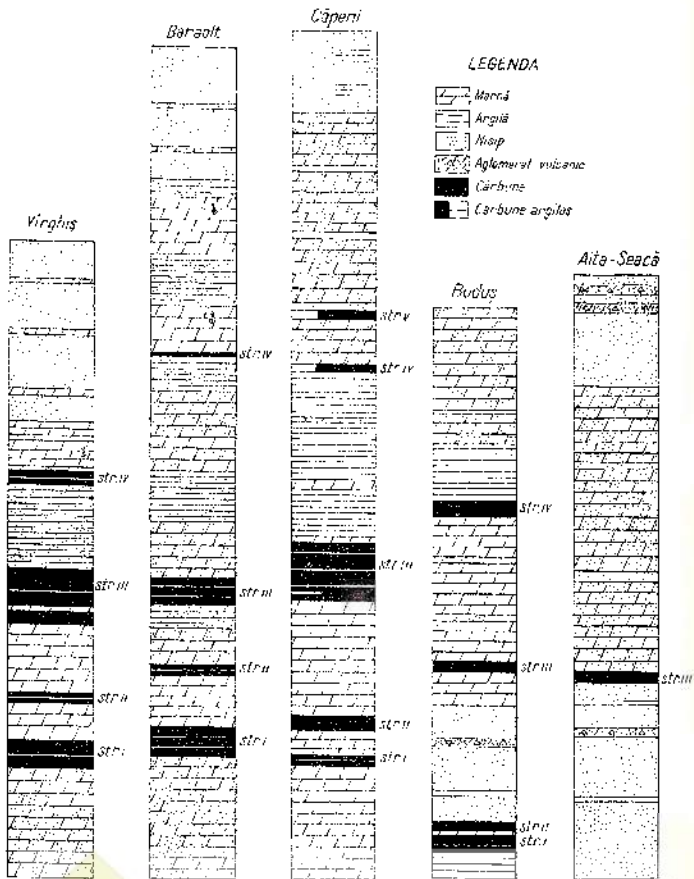 Căpeni
Baraolt
LEGENDA
Marnă
Argilă
Nisip
Aglomerat vulcanic
Cărbune
Cărbune argilos
Vîrghiș
Aita-Seacă
str.v
str.iv
str.iv
str.iv
str.iv
str.iii
str.iii
str.iii
str.iii
str.iii
str.ii
str.ii
str.ii
str.i
str.i
str.i
str.ii
str.i